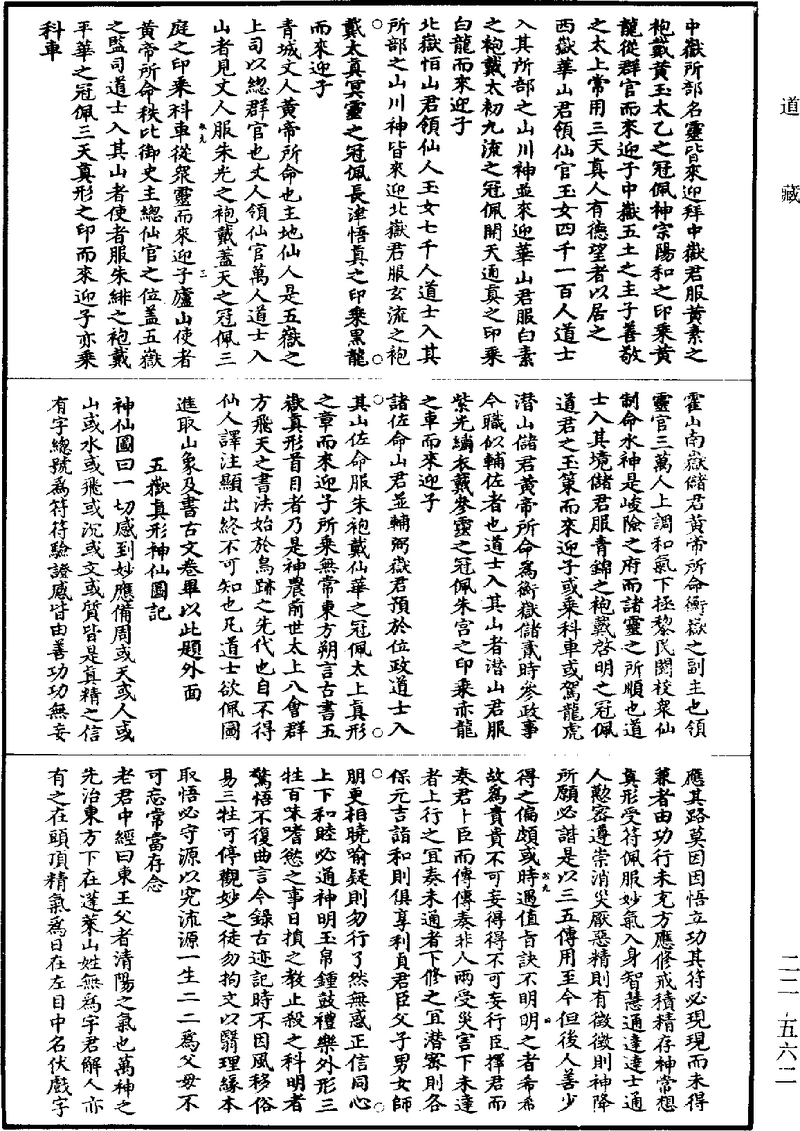 道藏
中嶽所部名靈皆來迎拜中嶽君服黃素之
袍戴黃玉太乙之冠佩神宗陽和之印乘黃
龍從群官而來迎子中嶽五土之主子善敬
之太上常用三天真人有德望者以居之
西嶽華山君領仙官玉女四千一百人道士
入其所部之山川神並來迎華山君服白素
之袍戴太初九流之冠佩開天通真之印乘
白龍而來迎子
北嶽恒山君領仙人玉女七千人道士入其
所部之山川神皆來迎北嶽君服玄流之袍
戴太真冥靈之冠佩長津悟真之印乘黑龍
而來迎子
青城丈人黃帝所命也主地仙人是五嶽之
上司以總群官也丈人領仙官萬人道士入
山者見丈人服朱光之袍戴蓋天之冠佩三
庭之印乘科車從衆靈而來迎子廬山使者
黃帝所命秩比御史主總仙官之位蓋五嶽
之監司道士入其山者使者服朱緋之袍戴
平華之冠佩三天真形之印而來迎子亦乘
科車
霍山南嶽儲君黃帝所命衡嶽之副主也領
靈官三萬人上調和氣下拯黎民閱校衆仙
制命水神是峻險之府而諸靈之所順也道
士入其境儲君服青錦之袍戴啓明之冠佩
道君之玉策而來迎子或乘科車或駕龍虎
潛山儲君黃帝所命爲衡嶽儲貳時參政事
今職似輔佐者也道士入其山者潛山君服
紫光繡衣戴參靈之冠佩朱宮之印乘赤龍
之車而來迎子
諸佐命山君並輔弼嶽君預於位政道士入
其山佐命服朱袍戴仙華之冠佩太上真形
之章而來迎子所乘無常東方朔言古書五
嶽真形首目者乃是神農前世太上八會群
方飛天之書法始於鳥跡之先代也自不得
仙人譯注顯出終不可知也凡道士欲佩圖
進取山象及書古文卷畢以此題外面
五嶽真形神仙圖記
神仙圖曰一切感到妙應備周或天或人或
山或水或飛或沉或文或質皆是真精之信
有字總號爲符符驗證感皆由善功功無妄
應其路莫因因悟立功其符必現現而未得
兼者由功行未充方應修戒積精存神常想
真形受符佩服妙氣入身智慧通達達士通
人懃密遵崇消災厭惡精則有徵徵則神降
所願必諧是以三五傳用至今但後人善少
得之偏頗或時遇值旨訣不明明之者希希
故爲貴貴不可妄得得不可妄行臣擇君而
奏君卜臣而傳傳奏非人兩受災害下未達
者上行之宜奏未通者下修之宜潛密則各
保元吉諧和則俱享利貞君臣父子男女師
朋更相曉喻疑則勿行了然無惑正信同心
上下和睦必通神明玉帛鍾鼓禮樂外形三
牲百味嗜慾之事日損之教止殺之科明者
驚悟不復曲言今錄古迹記時不因風移俗
易三牲可停觀妙之徒勿拘文以翳理緣本
取悟必守源以究流源一生二二爲父母不
可忘常當存念
老君中經曰東王父者清陽之氣也萬神之
先治東方下在蓬萊山姓無爲字君解人亦
有之在頭頂精氣爲日在左目中名伏戲字
二二·五六二